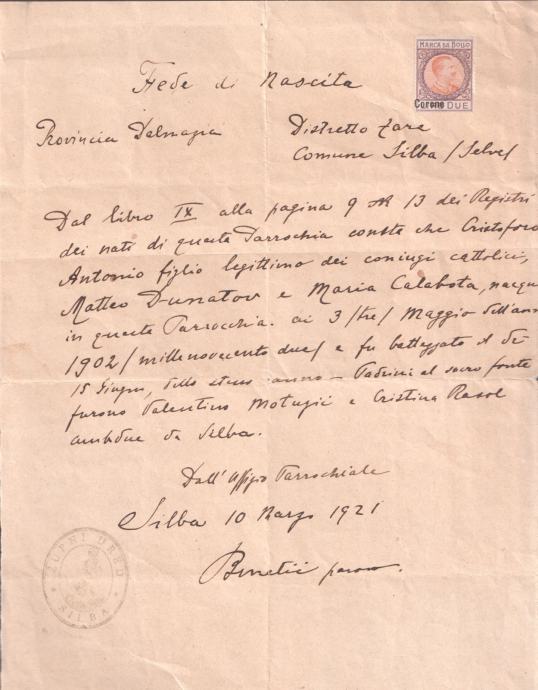 MARCA DA BOLLO
Corone DUE
Fede di Nascita
Provincia Dalmazia
Distretto Zara
Comune Silba /Selve/
Dal libro IX alla pagina 9 13 dei Registri
dei nati di questa Parrochia consta che Cristoforo
Antonio figlio legittimo dei coniugi cattolici,
Matteo Dunatov e Maria Calabota, nacque
in questa Parrocchia. ai 3 /tre/ Maggio dell'anno
1902 / millenovecento due / e fu battezzato
15 Giugno, dello stesso anno - Padrini al sacro fonte
furono Valentino Motušić e Cristina Rasol
ambdue da Silba.
Dall'Uffizio Parrochiale
Silba 10 Marzo 1921
parroco.
ŽUPNI URED
SILBA